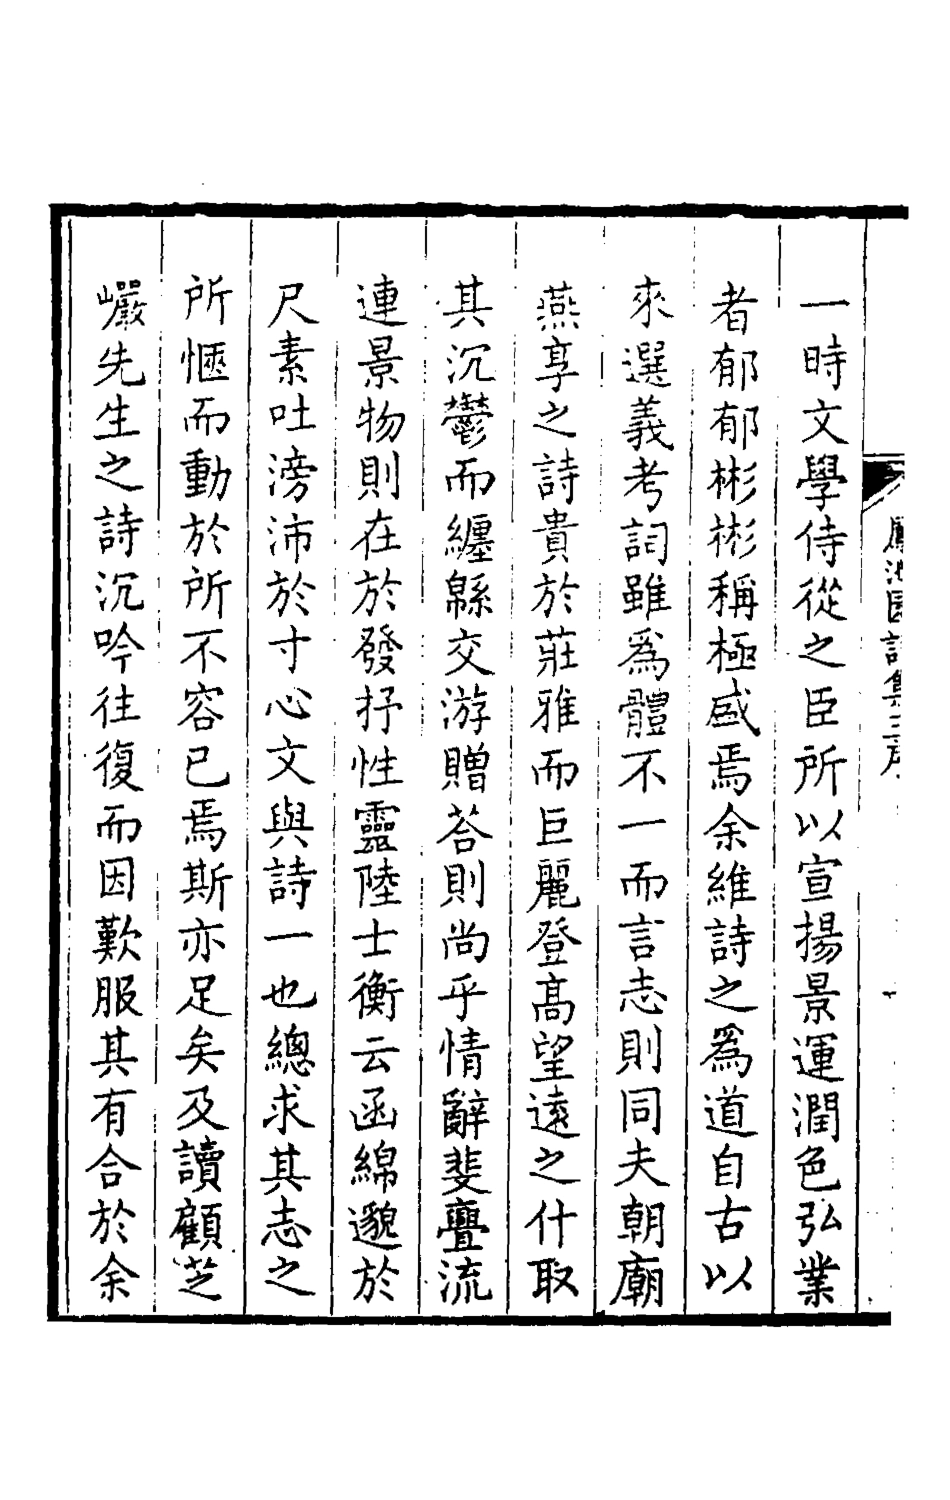 鳳池園詩集序
一時文學侍從之臣所以宣揚景運潤色弘業
者郁郁彬彬稱極盛焉余維詩之爲道自古以
來選義考詞雖爲體不一而言志則同夫朝廟
燕享之詩貴於莊雅而巨麗登高望遠之什取
其沉鬱而纏緜交游贈荅則尚乎情辭斐亹流
連景物則在於發抒性靈陸士衡云函綿邈於
尺素吐滂沛於寸心文與詩一也總求其志之
所愜而動於所不容已焉斯亦足矣及讀顧芝
巗先生之詩沉吟往復而因歎服其有合於余